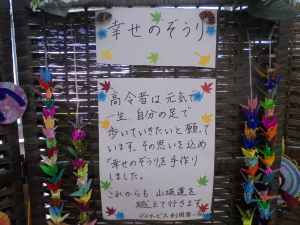 幸せのぞうり
高令者は元気で
一生、自分の足で
歩いていきたいと願って
います。その思いを込め
「幸せのぞうり」を手作り
しました。
これからも山坂道を
越えて行きます
デイサービス利用者一同